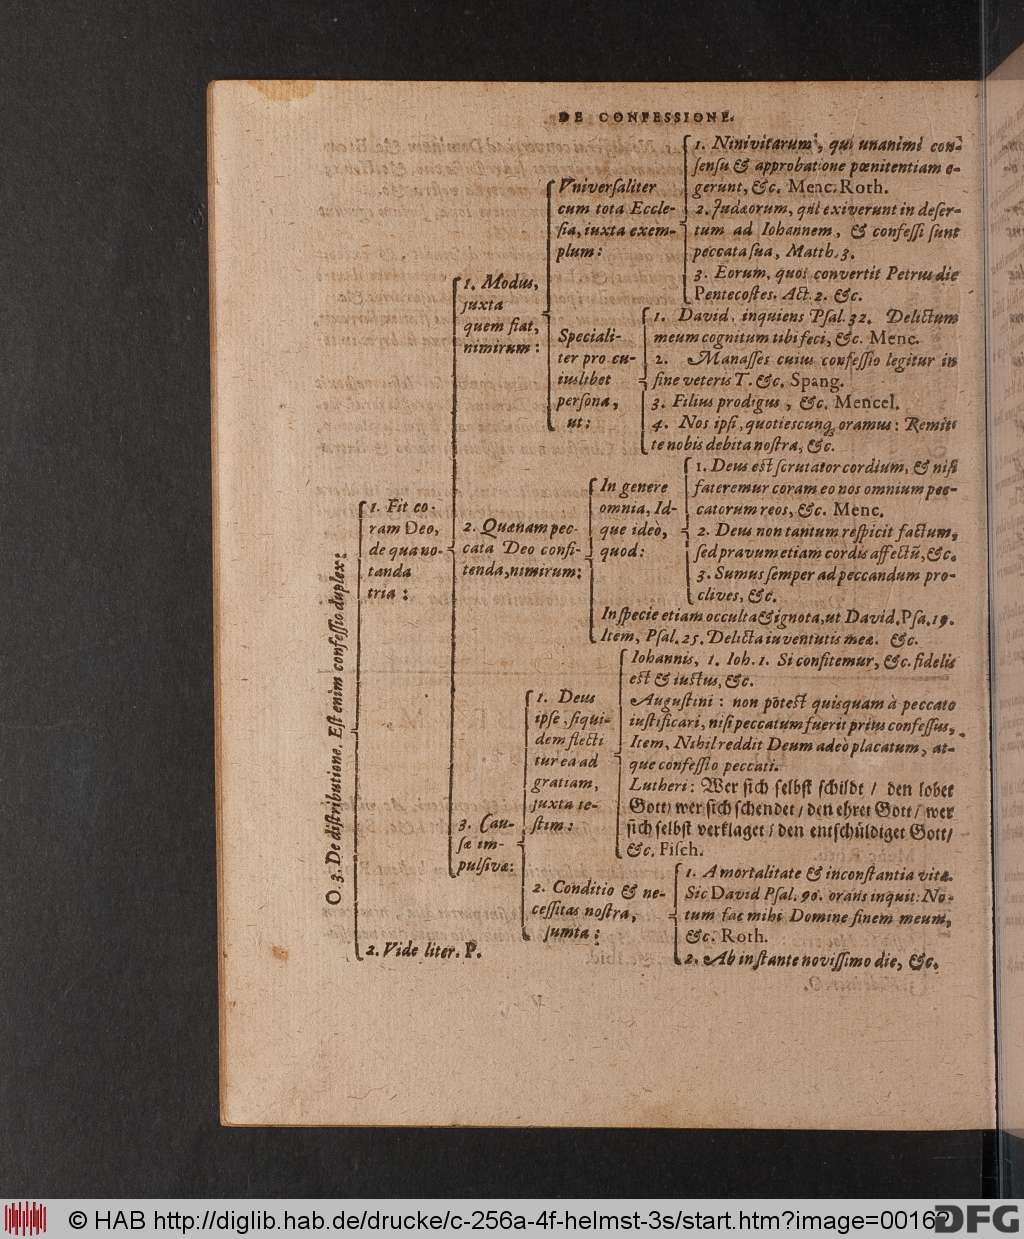 DE CONFESSIONE.
O 3. De distributione. Est enim confessio duplex:
1. Fit co-
ram Deo,
de qua no-
tanda
tria:
1. Modus,
juxta
quem fiat,
nimirum:
Vniversaliter
cum tota Eccle-
sia, iuxta exem-
plum:
1. Ninivitarum, qui unanimi con-
sensu & approbatione pœnitentiam e-
gerunt, &c. Menc. Roth.
2. Judæorum, qui exiverunt in deser-
tum ad Iohannem, & confessi sunt
peccata sua, Matth. 3.
3. Eorum, quos convertit Petrus die
Pentecostes. Act. 2. &c.
Speciali-
ter pro cu-
iuslibet
persona,
ut:
1. David, inquiens Psal. 32. Delictum
meum cognitum tibi feci, &c. Menc.
2. Manasses cuius confessio legitur in
fine veteris T. &c. Spang.
3. Filius prodigus, &c. Mencel.
4. Nos ipsi, quotiescunq; oramus: Remit-
te nobis debita nostra, &c.
2. Quænam pec-
cata Deo confi-
tenda, nimirum:
In genere
omnia, Id-
que ideo,
quod:
1. Deus est scrutator cordium, & nisi
fateremur coram eo nos omnium pec-
catorum reos, &c. Menc.
2. Deus non tantum respicit factum,
sed pravum etiam cordis affectũ, &c.
3. Sumus semper ad peccandum pro-
clives, &c.
In specie etiam occulta & ignota, ut David. Psa. 19.
Item, Psal. 25. Delicta iuventutis meæ. &c.
3. Cau-
sæ im-
pulsivæ:
1. Deus
ipse, siqui-
dem flecti
tur ea ad
gratiam,
juxta te-
stim:
Iohannis, 1. Ioh. 1. Si confitemur, &c. fidelis
est & iustus, &c.
Augustini: non põtest quisquam à peccato
iustificari, nisi peccatum fuerit prius confessus,
Item, Nihil reddit Deum adeò placatum, at-
que confessio peccati.
Lutheri: Wer sich selbst schildt / den lobet
Gott / wer sich schendet / den ehret Gott / wer
sich selbst verklaget / den entschüldiget Gott /
&c. Fisch.
2. Conditio & ne-
cessitas nostra,
sumta:
1. A mortalitate & inconstantia vitæ.
Sic David Psal. 90. orans inquit: No-
tum fac mihi Domine finem meum,
&c. Roth.
2. Ab instante novissimo die, &c.
2. Vide liter. P.
© HAB http://diglib.hab.de/drucke/c-256a-4f-helmst-3s/start.htm?image=00162
DFG